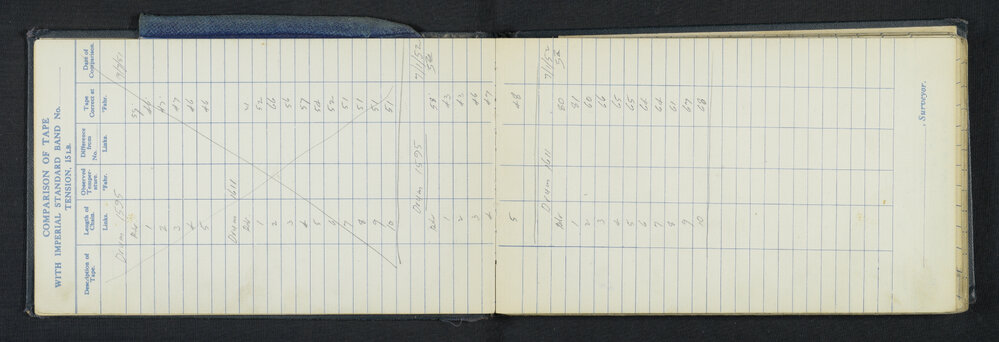 COMPARISON OF TAPE
WITH IMPERIAL STANDARD BAND No.
TENSION, 15 LB.
Description of Tape.
Length of Chain.
Observed Temperature.
Difference from No.
Tape Correct at
Date of Comparison.
Links.
°Fahr.
Links.
°Fahr.
Drum 1595
1
2 47
3 47
4 46
5 46
Drum 1611
1 52
2 66
3 56
4 57
5 54
6 52
7 51
8 51
9 51
10 51
Drum 1595 7/1/52
1 43
2 42
3 46
4 47
5 48
Drum 1611 7/1/52
60
1 81
2 60
3 66
4 65
5 65
6 64
7 64
8 61
9 67
10 68
Surveyor.